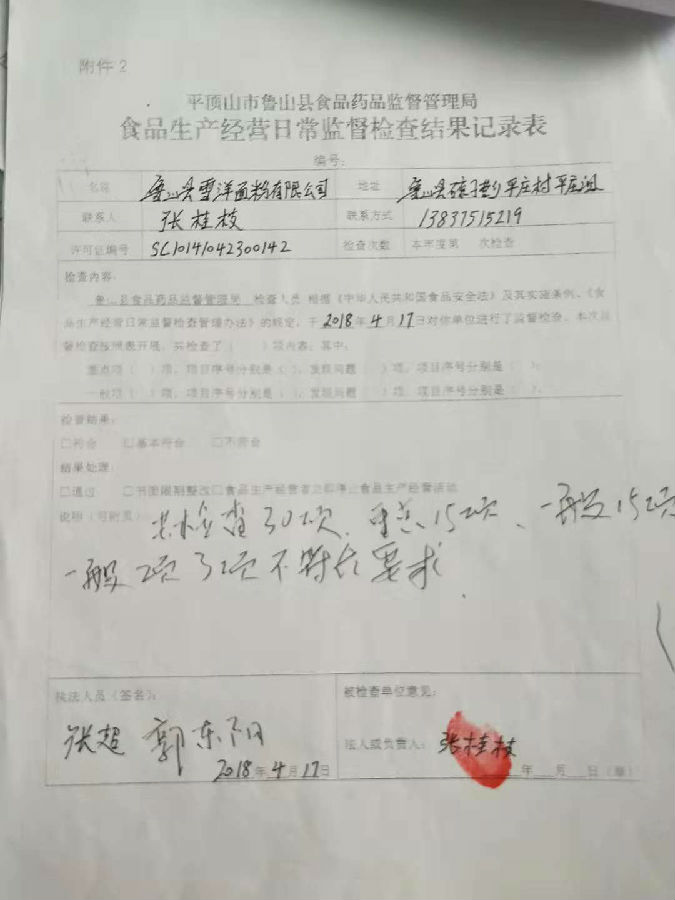 附件2
平顶山市鲁山县食品药品监督管理局
食品生产经营日常监督检查结果记录表
编号:
名称 鲁山县雪洋面粉有限公司 地址 鲁山县磙子营乡平庄村平庄组
联系人 张桂枝 联系方式 13837515219
许可证编号 SC10141042300142 检查次数 本年度第 次检查
检查内容:
鲁山县食品药品监督管理局 检查人员 根据《中华人民共和国食品安全法》及其实施条例、《食
品生产经营日常监督检查管理办法》的规定,于2018年4月17日对你单位进行了监督检查。本次监
督检查按照表开展,共检查了( )项内容;其中:
重点项( )项,项目序号分别是( ),发现问题( )项,项目序号分别是( );
一般项( )项,项目序号分别是( ),发现问题( )项,项目序号分别是( )。
检查结果:
□符合 □基本符合 □不符合
结果处理:
□通过 □书面限期整改□食品生产经营者立即停止食品生产经营活动
说明(可附页) 共检查30项、重点15项、一般15项
一般2项 项不符合要求.
执法人员(签名): 被检查单位意见:
张超 郭东阳 法人或负责人: 张桂枝
2018年4月17日 年 月 日(章)